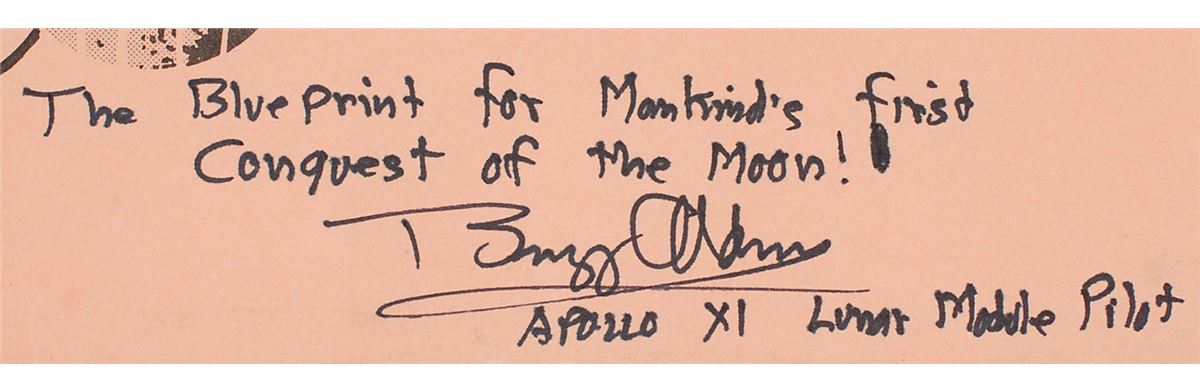 The Blueprint for Mankind's first
Conquest of the Moon!
Buzz Aldrin
APOLLO XI Lunar Module Pilot